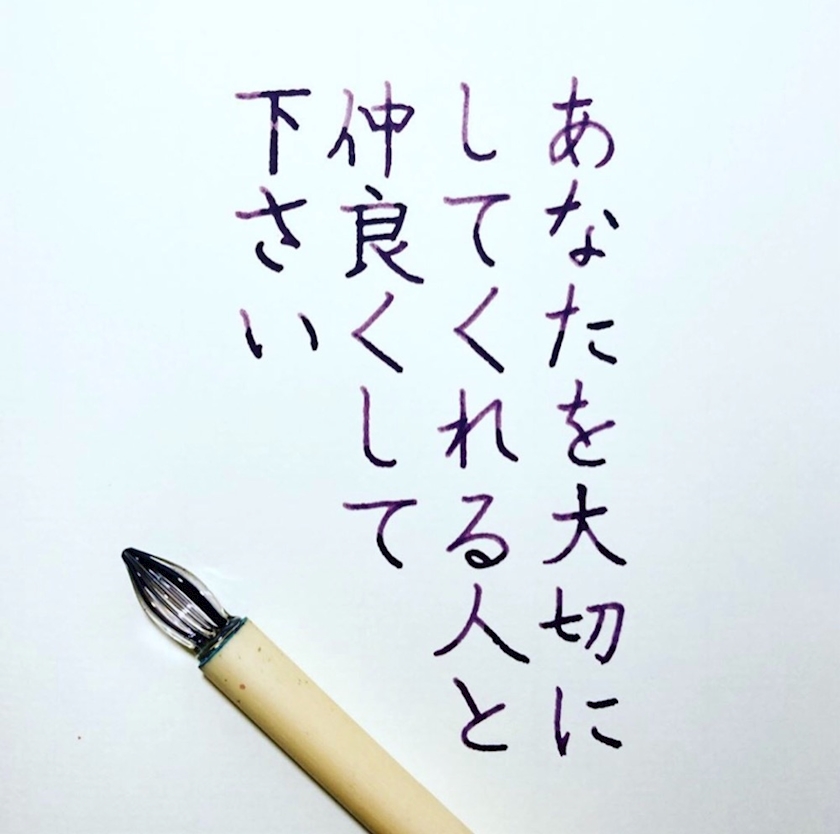 あなたを大切に
してくれる人と
仲良くして
下さい